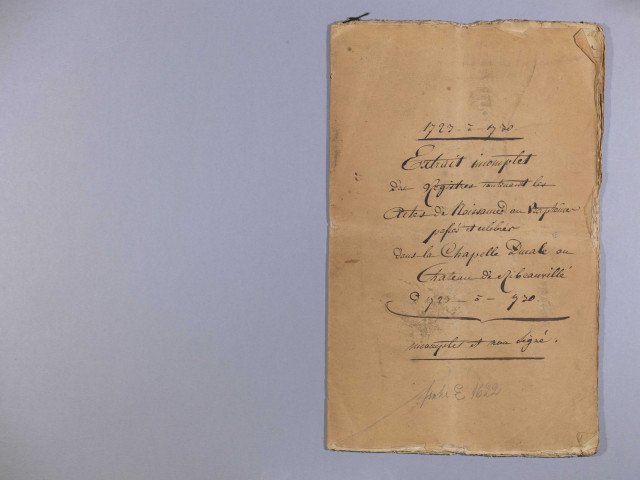 1723 - à - 930
Extrait incomplet
des Registres contenant les
Actes de Naissance ou Baptême
passés et célébrés
dans la Chapelle Ducale au
Chateau de Ribeauvillé
D 1723 - à - 930
incomplet et non signé.
E 1622